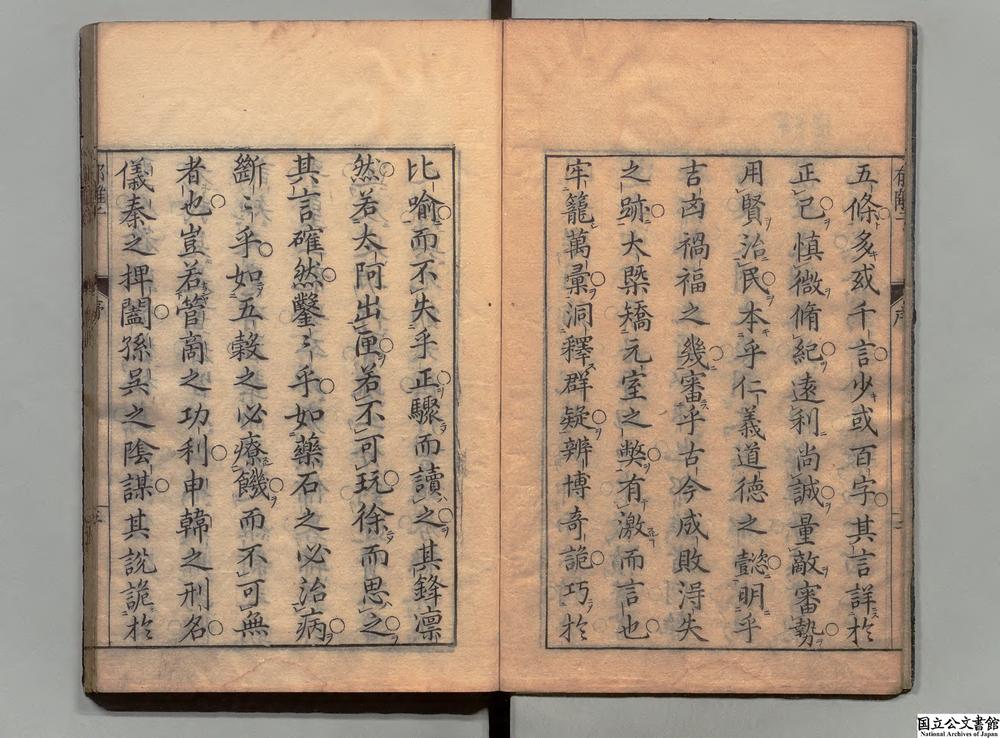 五條多或千言少或百字其言詳於
正己慎微脩紀遠利尚誠量敵審勢
用賢治民本乎仁義道德之懿明乎
吉凶禍福之幾審乎古今成敗淂失
之跡大槩矯元室之獘有激而言也
牢籠萬彙洞釋群疑辨博奇詭巧於
比喻而不失乎正驟而讀之其鋒凛
然若太阿出匣若不可玩徐而思之
其言確然鑿〻乎如藥石之必治病
斷〻乎如五穀之必療饑而不可無
者也豈若管商之功利申韓之刑名
儀秦之捭闔孫吳之陰謀其說詭於
序
序
国立公文書館
National Archives of Japan